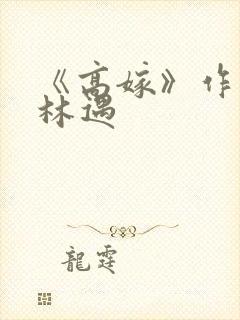 《高嫁》作
林遇
龍霆